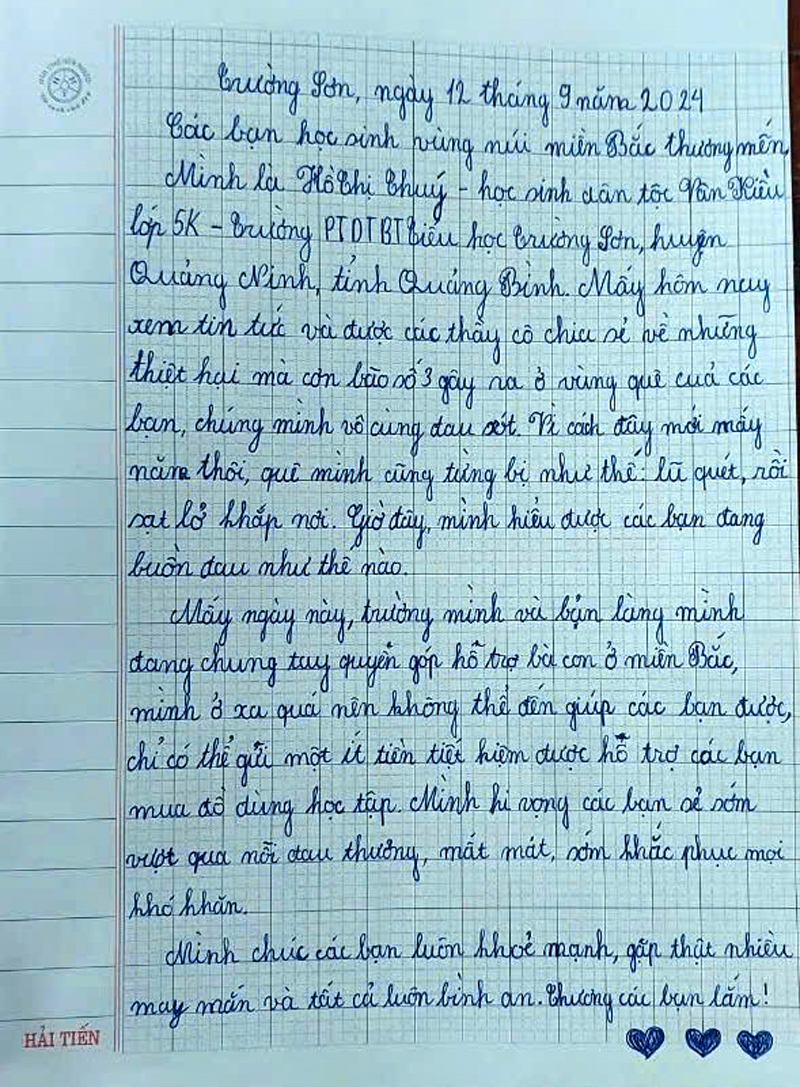 Trường Sơn, ngày 12 tháng 9 năm 2024
Các bạn học sinh vùng núi miền Bắc thương mến,
Mình là Hồ Thị Thuý - học sinh dân tộc Vân Kiều
lớp 5K - Trường PTDTBT Tiểu học Trường Sơn, huyện
Quảng Ninh, tỉnh Quảng Bình. Mấy hôm nay
xem tin tức và được các thầy cô chia sẻ về những
thiệt hại mà cơn bão số 3 gây ra ở vùng quê cuả các
bạn, chúng mình vô cùng đau xót. Vì cách đây mới mấy
năm thôi, quê mình cũng từng bị như thế: lũ quét, rồi
sạt lở khắp nơi. Giờ đây, mình hiểu được các bạn đang
buồn đau như thế nào.
Mấy ngày này, trường mình và bản làng mình
đang chung tay quyên góp hỗ trợ bà con ở miền Bắc,
mình ở xa quá nên không thể đến giúp các bạn được,
chỉ có thể gửi một ít tiền tiết kiệm được hỗ trợ các bạn
mua đồ dùng học tập. Mình hi vọng các bạn sẽ sớm
vượt qua nỗi đau thương, mất mát, sớm khắc phục mọi
khó khăn.
Mình chúc các bạn luôn khoẻ mạnh, gặp thật nhiều
may mắn và tất cả luôn bình an. Thương các bạn lắm!
HẢI TIẾN